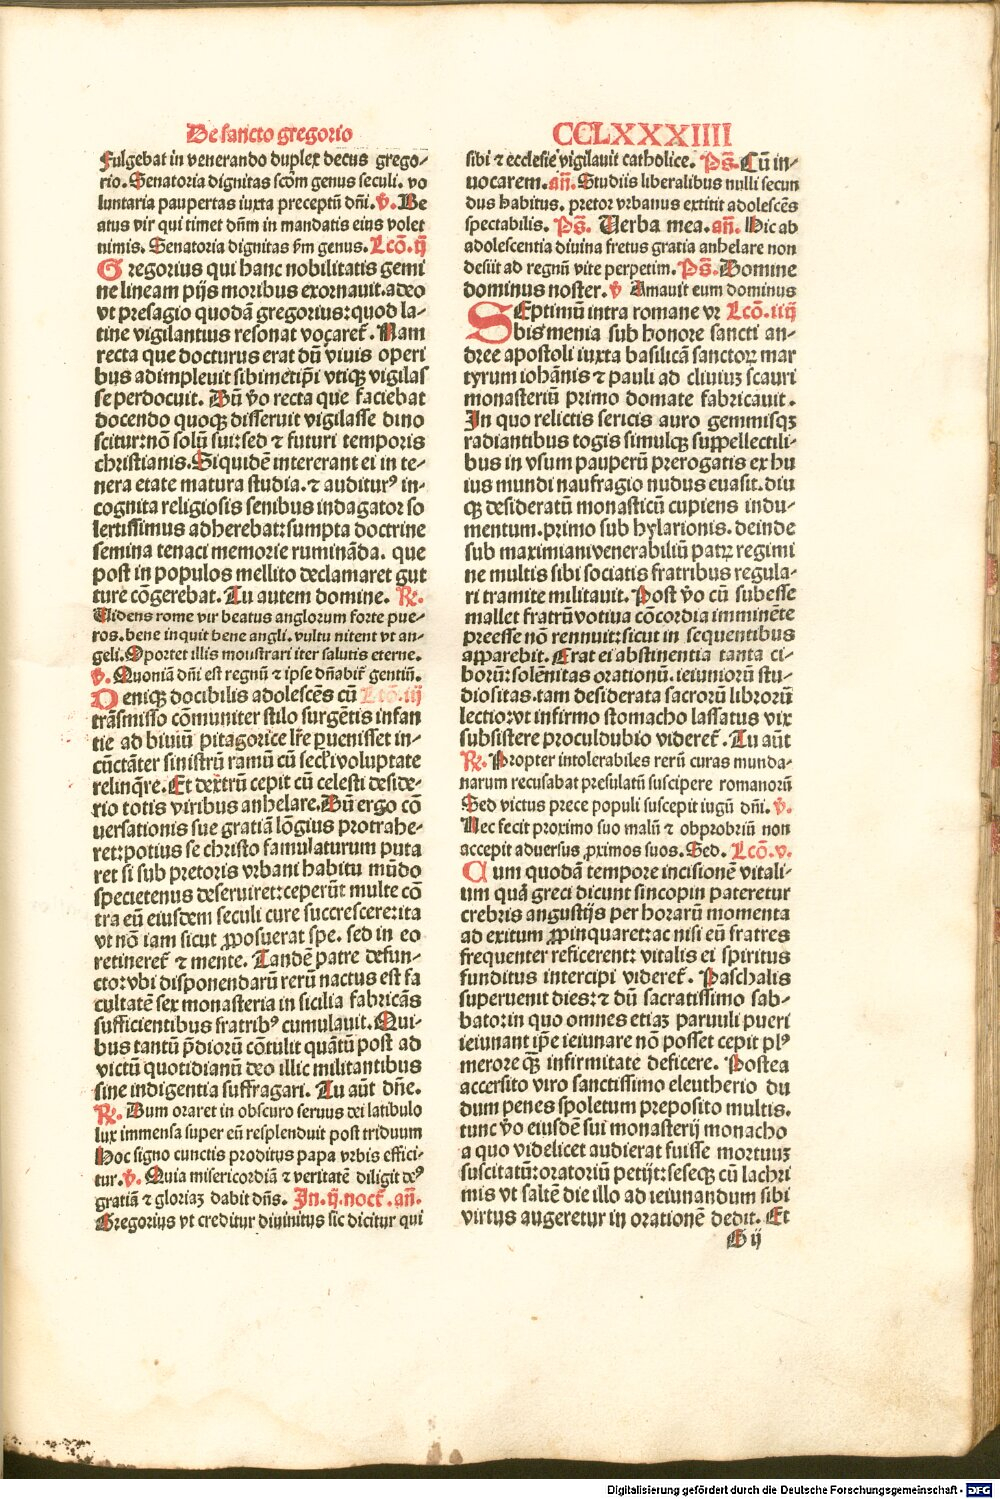 De sancto gregorio
CCLXXXXIIII
Fulgebat in venerando duplex decus grego-
rio. Senatoria dignitas scđm genus seculi. vo
luntaria paupertas iuxta preceptū dñi. ℣. Be
atus vir qui timet dñm in mandatis eius volet
nimis. Senatoria dignitas ẜm genus. Lcō. ij
Gregorius qui hanc nobilitatis gemi
ne lineam pijs moribus exornauit. adeo
vt presagio quodā gregorius: quod la-
tine vigilantius resonat vocaret᷑. Nam
recta que docturus erat dū viuis operi
bus adimpleuit sibimetip̄i vtiqꝫ vigilas
se perdocuit. Dū v̄o recta que faciebat
docendo quoqꝫ disseruit vigilasse dino
scitur: nō solū sui: sed ⁊ futuri temporis
christianis. Siquidē intererant ei in te-
nera etate matura studia. ⁊ auditurꝰ in-
cognita religiosis senibus indagator so
lertissimus adherebat: sumpta doctrine
semina tenaci memorie rumināda. que
post in populos mellito declamaret gut
ture cōgerebat. Tu autem domine. ℟.
Videns rome vir beatus anglorum forte pue-
ros. bene inquit bene angli. vultu nitent vt an-
geli. Oportet illis moustrari iter salutis eterne.
℣. Quoniā dñi est regnū ⁊ ipse dñabit᷑ gentiū.
Deniqꝫ docibilis adolescēs cū Lcō. iij
trāsmisso cōmuniter stilo surgētis infan
tie ad biuiū pitagorice lr̄e ꝑuenisset in-
cūctāter sinistrū ramū cū secl'i voluptate
relinq̄re. Et dextrū cepit cū celesti deside-
rio totis viribus anhelare. Dū ergo cō
uersationis sue gratiā lōgius protrahe-
ret: potius se christo famulaturum puta
ret si sub pretoris vrbani habitu mūdo
specietenus deseruiret: ceperūt multe cō
tra eū eiusdem seculi cure succrescere: ita
vt nō iam sicut ꝓposuerat spe. sed in eo
retineret᷑ ⁊ mente. Tandē patre defun-
cto: vbi disponendarū rerū nactus est fa
cultatē sex monasteria in sicilia fabricās
sufficientibus fratribꝰ cumulauit. Qui-
bus tantū p̄diorū cōtulit quātū post ad
victū quotidianū deo illic militantibus
sine indigentia suffragari. Tu aūt dñe.
℟. Dum oraret in obscuro seruus dei latibulo
lux immensa super eū resplenduit post triduum
Hoc signo cunctis proditus papa vrbis effici-
tur. ℣. Quia misericordiā ⁊ veritatē diligit deꝰ
gratiā ⁊ gloriaꝫ dabit dñs. In. ij. noct᷑. añ.
Gregorius vt creditur diuinitus sic dicitur qui
sibi ⁊ ecclesie vigilauit catholice. Ps̄. Cū in-
uocarem. añ. Studiis liberalibus nulli secun
dus habitus. pretor vrbanus extitit adolescēs
spectabilis. Ps̄. Verba mea. añ. Hic ab
adolescentia diuina fretus gratia anhelare non
desiit ad regnū vite perpetim. Ps̄. Domine
dominus noster. ℣ Amauit eum dominus
SEptimū intra romane vr Lcō. iiij
bis menia sub honore sancti an-
dree apostoli iuxta basilicā sanctoꝝ mar
tyrum iohānis ⁊ pauli ad cliuiuꝫ scauri
monasteriū primo domate fabricauit.
In quo relictis sericis auro gemmisqꝫ
radiantibus togis simulqꝫ suppellectili-
bus in vsum pauperū prerogatis ex hu
ius mundi naufragio nudus euasit. diu
qꝫ desideratū monasticū cupiens indu-
mentum. primo sub hylarionis. deinde
sub maximiani venerabiliū patꝝ regimi
ne multis sibi sociatis fratribus regula-
ri tramite militauit. Post v̄o cū subesse
mallet fratrū votiua cōcordia imminēte
preesse nō rennuit: sicut in sequentibus
apparebit. Erat ei abstinentia tanta ci-
borū: solēnitas orationū. ieiuniorū stu-
diositas. tam desiderata sacrorū librorū
lectio: vt infirmo stomacho lassatus vix
subsistere proculdubio videret᷑. Tu aūt
℟. Propter intolerabiles rerū curas munda-
narum recusabat presulatū suscipere romanorū
Sed victus prece populi suscepit iugū dñi. ℣.
Nec fecit proximo suo malū ⁊ obprobriū non
accepit aduersus ꝓximos suos. Sed. Lcō. v.
Cum quodā tempore incisionē vitali-
um quā greci dicunt sincopin pateretur
crebris angustijs per horarū momenta
ad exitum ꝓpinquaret: ac nisi eū fratres
frequenter reficerent: vitalis ei spiritus
funditus intercipi videret᷑. Paschalis
superuenit dies: ⁊ dū sacratissimo sab-
bato: in quo omnes etiaꝫ paruuli pueri
ieiunant ip̄e ieiunare nō posset cepit plꝰ
merore q̄ꝫ infirmitate deficere. Postea
accersito viro sanctissimo eleutherio du
dum penes spoletum preposito multis.
tunc v̄o eiusdē sui monasterij monacho
a quo videlicet audierat fuisse mortuuꝫ
suscitatū: oratoriū petijt: seseqꝫ cū lachri
mis vt saltē die illo ad ieiunandum sibi
virtus augeretur in orationē dedit. Et
G ij
Digitalisierung gefördert durch die Deutsche Forschungsgemeinschaft - DFG